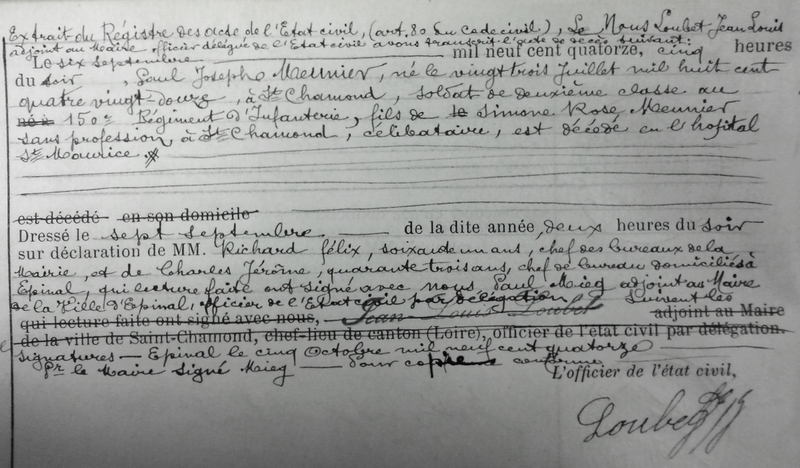 Extrait du Régistre des acte de l'Etat civil, (art. 80 du Code civil), Le Nous Loubet Jean Louis
adjoint au Maire officier délégué de l'Etat civil avons transcrit l'acte de décès suivant:
Le six septembre mil neuf cent quatorze, cinq heures
du soir, Paul Joseph Meunier, né le vingt trois Juillet mil huit cent
quatre vingt-douze, à St Chamond, soldat de deuxième classe au
150e Régiment d'Infanterie, fils de le Simone Rose Meunier
sans profession, à St Chamond, célibataire, est décédé en l'hôpital
St Maurice.
est décédé en son domicile
Dressé le sept septembre de la dite année, deux heures du soir
sur déclaration de MM. Richard félix, soixante un ans, chef des bureaux de la
Mairie, et de Charles Jérôme, quarante trois ans, chef de bureau domiciliés à
Epinal, qui lecture faite ont signé avec nous Paul Mieg adjoint au Maire
de la Ville d'Epinal, officier de l'Etat civil par délégation Suivent les
qui lecture faite ont signé avec nous, Jean Louis Loubet adjoint au Maire
de la ville de Saint-Chamond, chef-lieu de canton (Loire), officier de l'état civil par délégation.
signatures — Epinal le cinq Octobre mil neuf cent quatorze
Pr le Maire signé Mieg — Pour copie conforme
L'officier de l'état civil,
Loubet